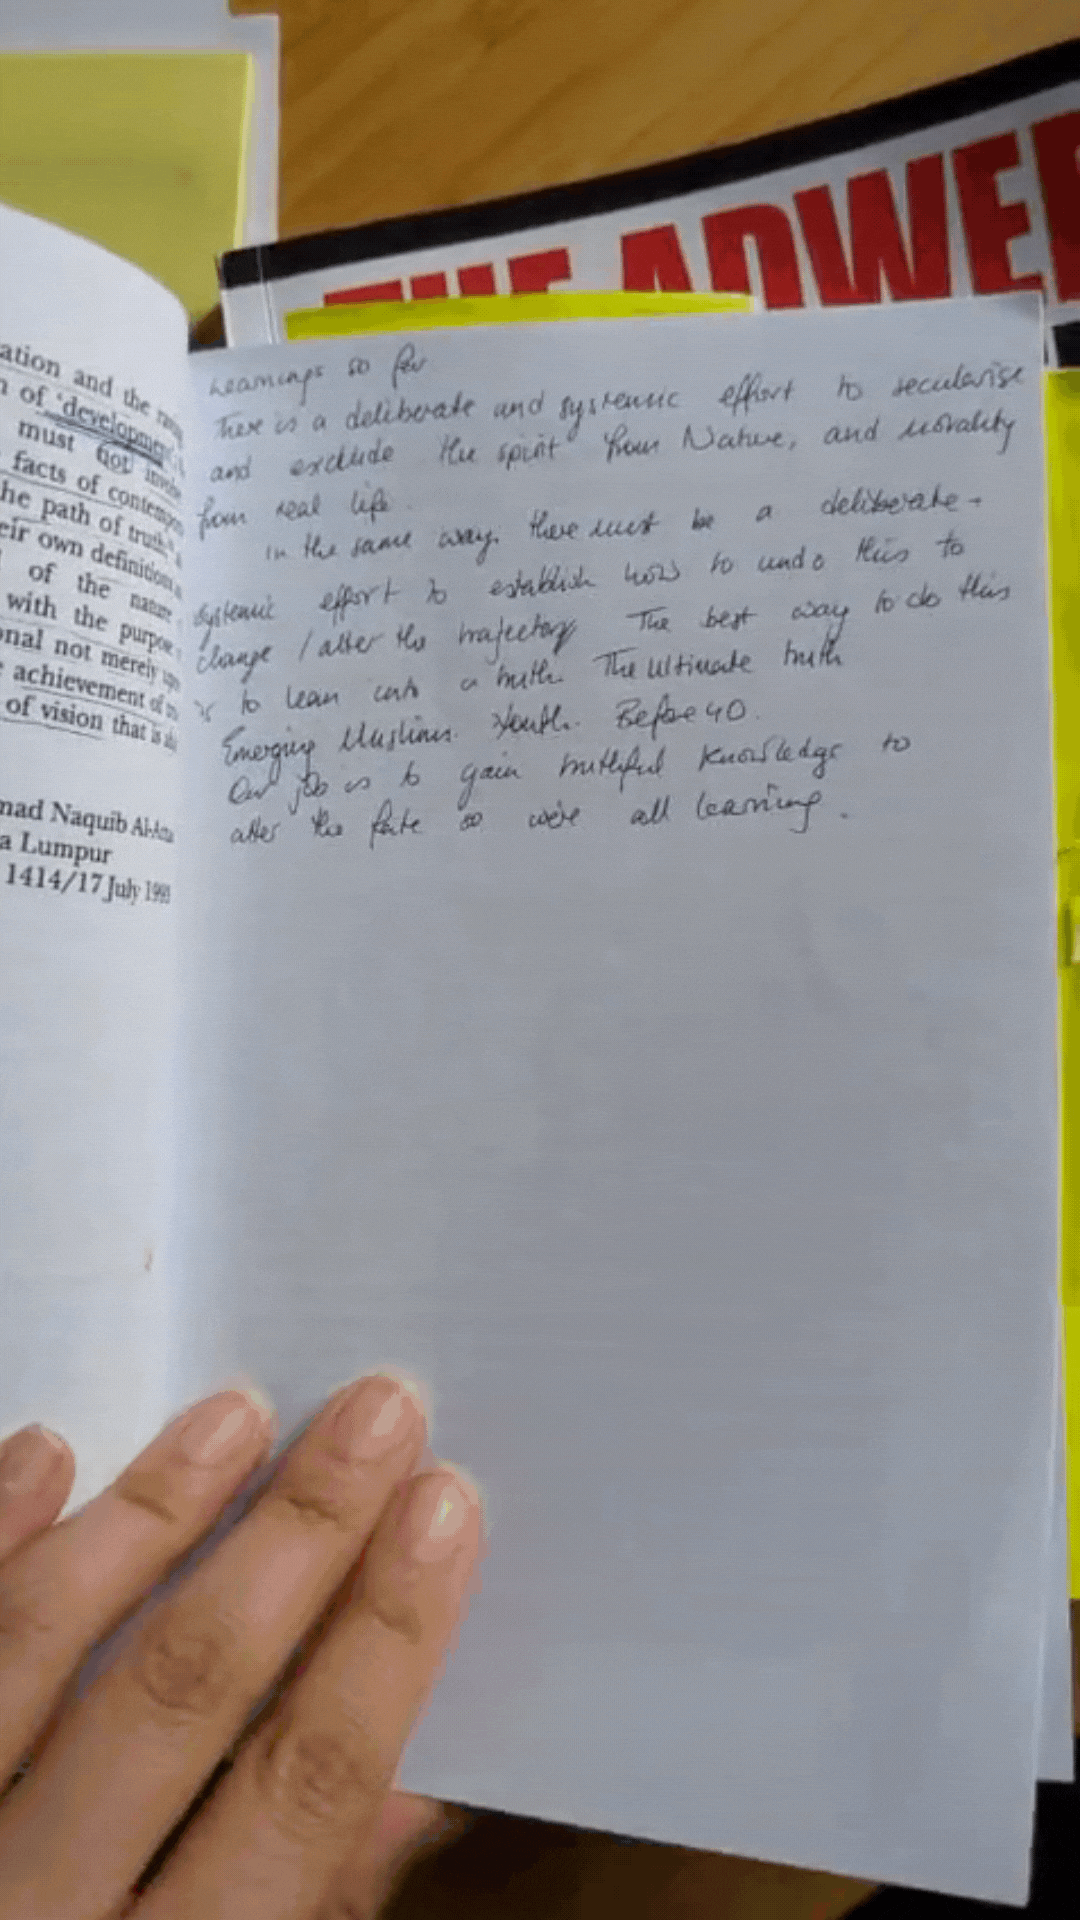 THE ADWE
ation and the
n of 'development
must not
facts of
he path of truth
eir own definition
of the nature
with the purpose
onal not merely
achievement of
of vision that is
mad Naquib Al-
a Lumpur
1414/17 July 199
Learnings so far
There is a deliberate and systemic effort to secularise
and exclude the spirit from Nature, and morality
from real life.
in the same way. there must be a deliberate -
systemic effort to establish how to undo this to
change / alter the trajectory The best way to do this
is to lean into a truth. The ultimate truth
Emerging Muslims. Youth. Before 40.
Our job is to gain truthful knowledge to
alter the fate so we're all learning.